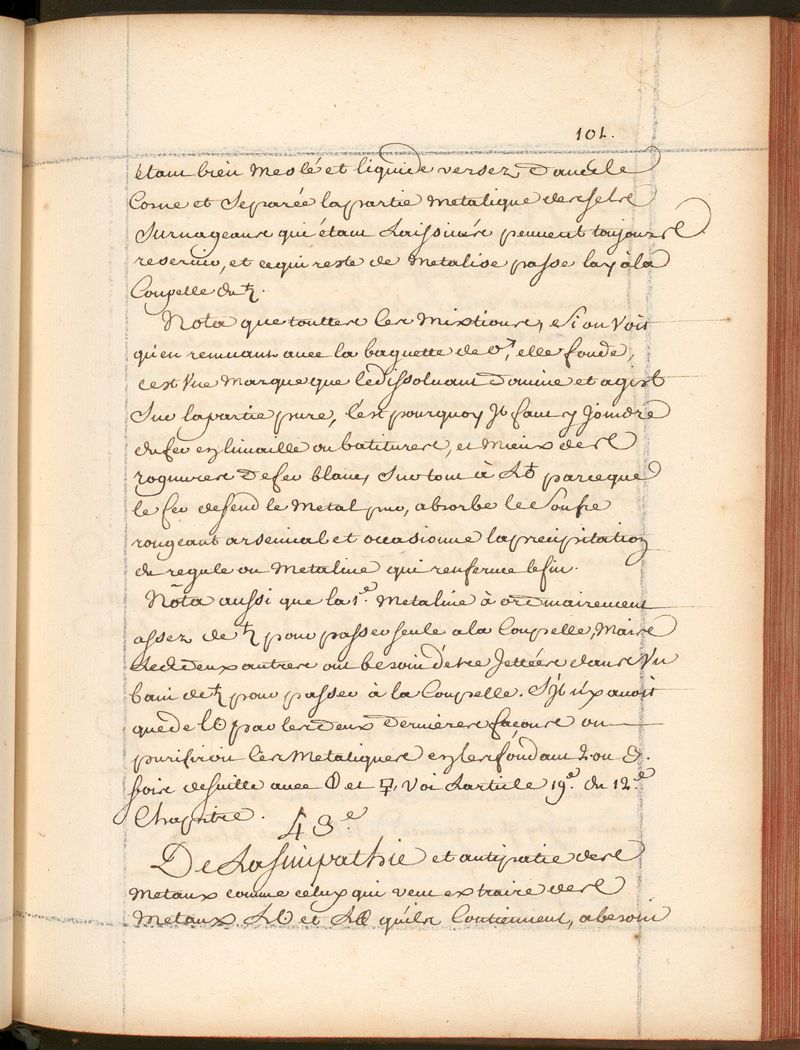 101.
étant bien meslé et liquide versez dans le
Cone et Separée la partie metalique des sels
Surnageans qui étant Laissinés peuvent toujours
reservir, et ce qui reste de metalise passe lay à la
Coupelle du ♄.
Nota que touttes les mixtions, et si on voit
qu'en remuant avec la baguette de ♂, elle fonde,
cest Une marque que le dissoluant Domine et agist
Sur la partie pure, C'est pourquoy Jl faut y Joindre
du fer en limaille ou batitures, et mieux des
rognures de fer blanc, Sur tout à L' parceque
le fer defend le metal pur, absorbe le Soufre
rongeant arsenical et occasionne la precipitation
du regule ou Metaline qui renferme le fin.
Nota aussi que la 1.e Metaline à ordinairement
assez de ♄ pour passer seule a la Coupelle, Mais
les deux autres ont besoin d'être Jettées dans Un
bain de ♄ pour passer à la Coupelle. S'jl n'y avoit
que de l' par les deux Dernieres façons on
purifiroit les Metaliques en les fondant 2. ou 3.
fois de suitte avec et, Voi Larticle 19.e du 12.e
Chapitre.
43.e
De La Simpathie et antipatie des
Metaux comme celuy qui veut extraire des
Metaux L' et L' qu'ils Contiennent, a besoin